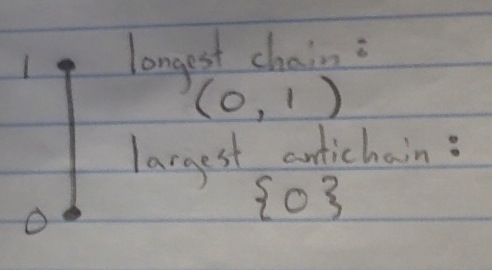 1
longest chain:
(0, 1)
largest antichain:
{0}
0